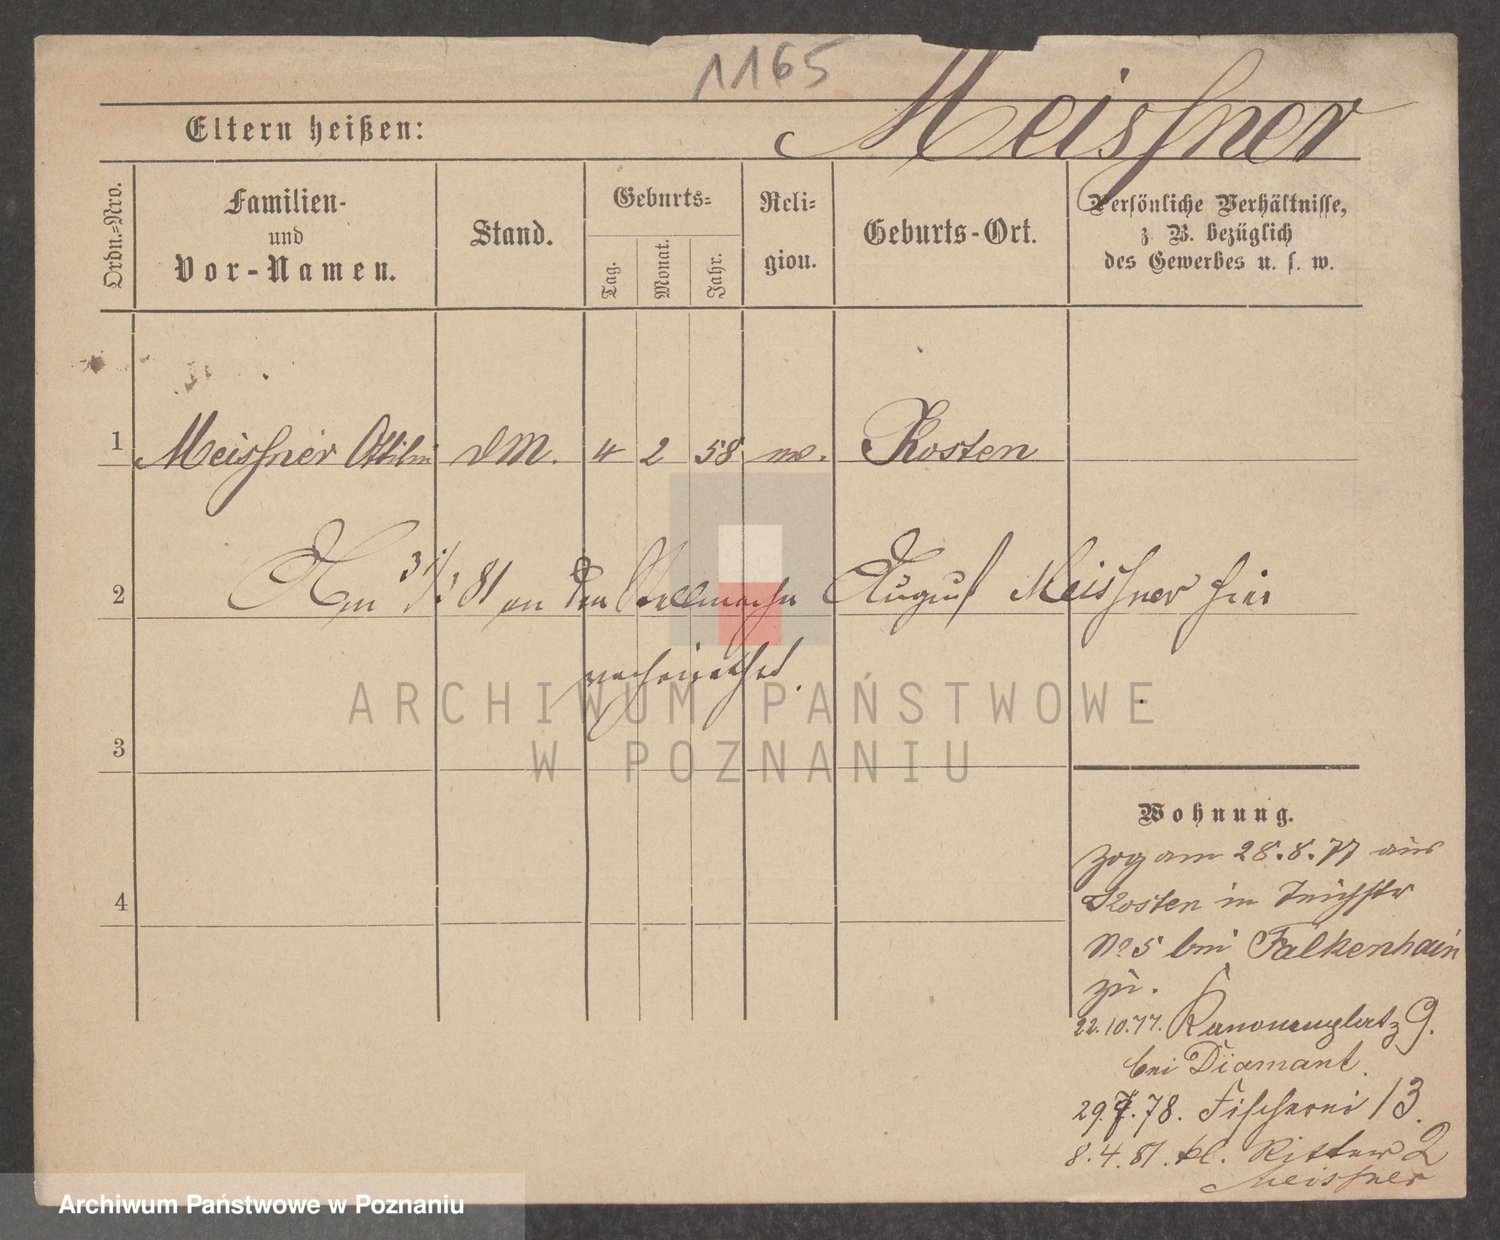 1165
Meissner
Eltern heißen:
Ordn.-Nro.
Familien-
und
Vor-Namen.
Stand.
Geburts-
Tag.
Monat.
Jahr.
Reli-
gion.
Geburts-Ort.
Persönliche Verhältnisse,
z. B. bezüglich
des Gewerbes u. s. w.
1 Meissner Ottilie DM. 4 2 58 Kosten
2 Am 31/3 81 an den August Meissner hier
verheirathet.
3
4
ARCHIWUM PAŃSTWOWE
W POZNANIU
Wohnung.
Zog am 28.8.77 aus
Kosten in Teichstr
No 5 bei Falkenhain
zu.
22.10.77. Kanonenplatz 9.
bei Diamant.
29. .78. Fischerei 13.
8.4.81. kl. Ritter 2
Meissner
Archiwum Państwowe w Poznaniu